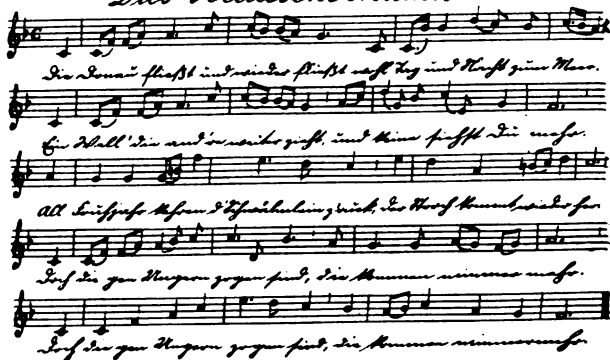 Die Donau fließt und wieder fließt wohl Tag und Nacht zum Meer.
Ein Well' die and're weiter zieht, und keine siehst du mehr.
All Frühjahr kehren d'Schwälmlein zurück, der Storch kommt wieder her
Doch die gen Ungarn zogen sind, die kommen nimmer mehr.
Doch die gen Ungarn zogen sind, die kommen nimmermehr.